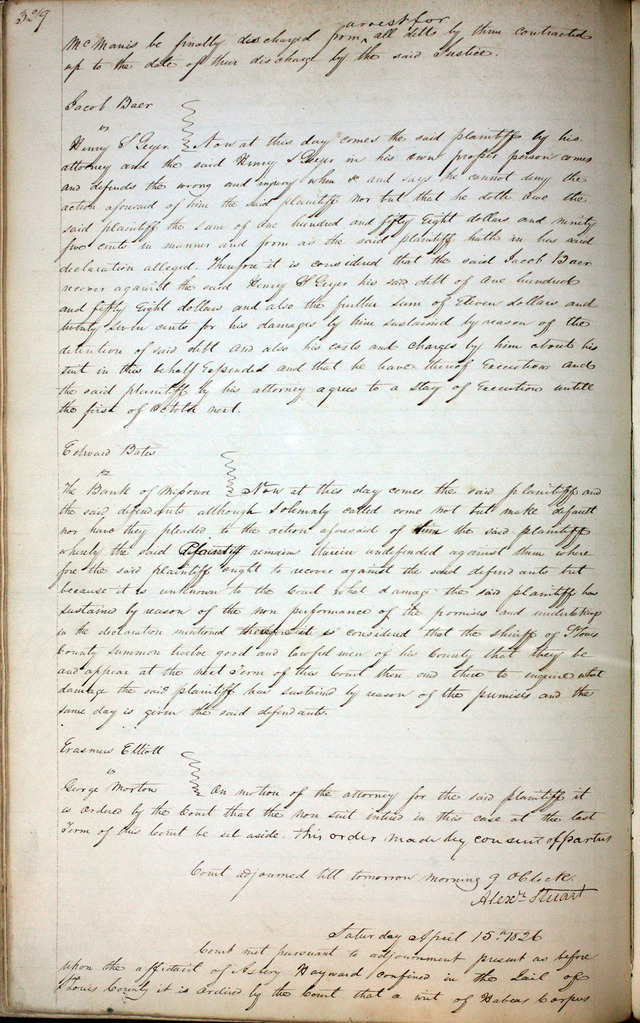 329
arrest for
McManis be finally discharged from ^ all debts by them contracted
up to the date of their discharge by the said Justice.
Jacob Baer
vs
Henry S Geyer Now at this day comes the said plaintiff by his
attorney and the said Henry S Geyer in his own proper person comes
and defends the wrong and injury when &c and says he cannot deny the
action aforesaid of him the said plaintiff nor but that he doth owe the
said plaintiff the sum of One hundred and fifty Eight dollars and ninety
five cents in manner and form as the said plaintiff hath in his said
declaration alleged. Therefore it is considered that the said Jacob Baer
recover against the said Henry S Geyer his said debt of One hundred
and fifty Eight dollars and also the further sum of Eleven dollars and
twenty seven cents for his damages by him sustained by reason of the
detention of said debt and also his costs and charges by him about his
suit in this behalf Expended and that he have thereof Execution and
the said plaintiff by his attorney agrees to a stay of Execution untill
the first of October next.
Edward Bates
vs
The Bank of Missouri Now at this day comes the said plaintiff and
the said defendants although Solemnly called come not but make default
nor have they pleaded to the action aforesaid of him the said plaintiff
whereby the said Plaintiff remains therein undefended against them where
fore the said plaintiff ought to recover against the said defendants but
because it is unknown to the Court what damage the said plaintiff has
sustained by reason of the non performance of the promises and undertaking
in the declaration mentioned therefore it is considered that the Sheriff of St Louis
County summon twelve good and lawful men of his County that they be
and appear at the next Term of this Court then and there to enquire what
damage the said plaintiff has sustained by reason of the premises and the
same day is given the said defendants.
Erasmus Elliott
vs
George Morton On motion of the attorney for the said plaintiff it
is Ordered by the Court that the non suit entered in this case at the last
Term of this Court be set aside. this order made by consent of parties
Court adjourned till tomorrow morning 9 OClock.
Alexr Stuart
Saturday April 15th 1826
Court met pursuant to adjournment present as before
upon the affidavit of Asbery Hayward confined in the Jail of
St Louis County it is Ordered by the Court that a writ of Habeas Corpus